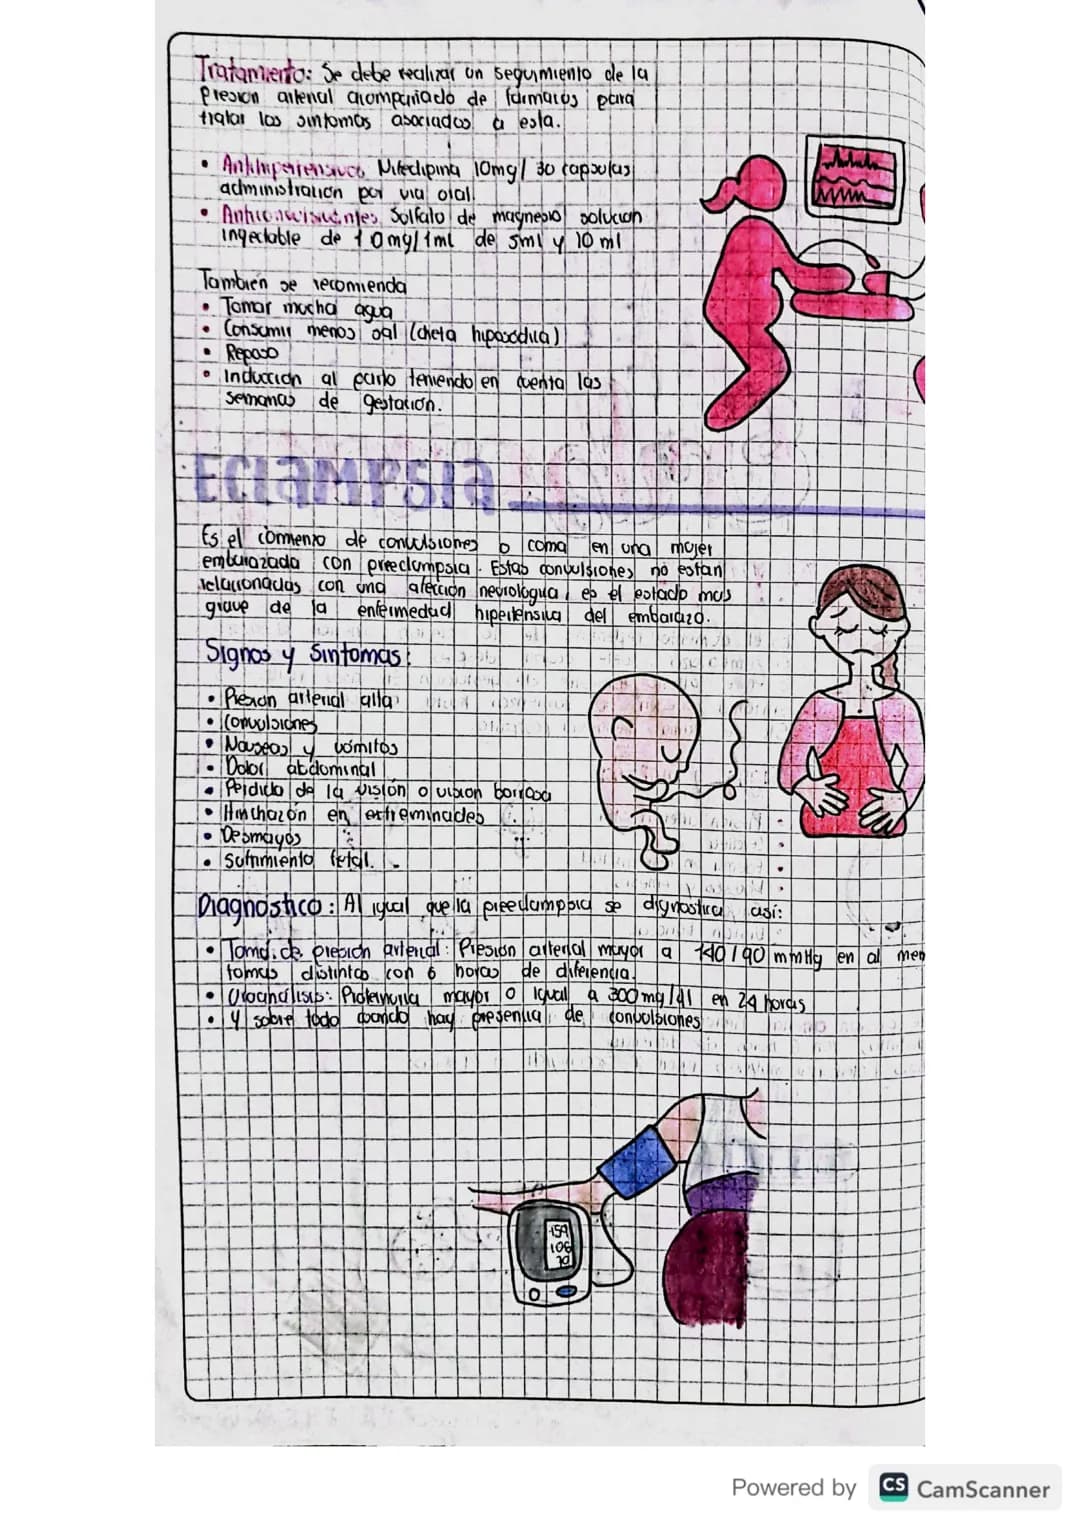 Tratamiento: Se debe realizar un seguimiento de la
Presion arterial acompañado de farmacos para
tratar los sintomas asociados a esta.
• Antihipertensivos Nifedipina 10mg/ 30 capsulas
administration por via oral.
• Anticonvulsivantes Solfato de magnesio solucion
ingectable de 10mg/1ml de 5ml y 10 ml
También se recomienda
• Tomar mucha agua
• Consumir menos sal (dieta hiposodica)
• Reposo
• Induccion al parto teniendo en cuenta las
semanas de gestación.
Eclampsia
Es el comienzo de convulsiones o coma en una mujer
embarazada con preeclampsia. Estas convulsiones no estan
relacionadas con una afección neurologica, es el estado mas
grave de la enfermedad hipertensiva del embarazo.
Signos y Sintomas:
• Presion arterial alta
• Convulsiones
• Nauseas y vómitos
• Dolor abdominal
• Perdida de la visión o vision borrosa
• Hinchazón en extreminades
• Desmayos
• Sufrimiento fetal.
Diagnostico: Al igual que la preeclampsia se dignostica así:
• Toma de presión arterial: Presion arterial mayor a 140/90 mmHg en al men
tomas distintas con 6 horas de diferencia.
• Uroanálisis: Proteinuria mayor o igual a 300mg/dl en 24 horas
• Y sobre todo cuando hay presencia de convulsiones
159
106
70
Powered by CS CamScanner